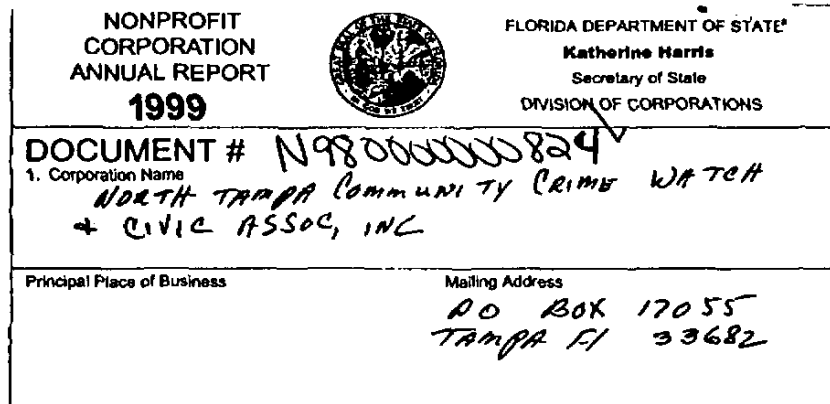 NONPROFIT
CORPORATION
ANNUAL REPORT
1999
GREAT SEAL OF THE STATE OF FLORIDA
IN GOD WE TRUST
FLORIDA DEPARTMENT OF STATE
Katherine Harris
Secretary of State
DIVISION OF CORPORATIONS
DOCUMENT # N98000000824
1. Corporation Name
NORTH TAMPA COMMUNITY CRIME WATCH
& CIVIC ASSOC, INC
Principal Place of Business
Mailing Address
PO BOX 17055
TAMPA Fl 33682